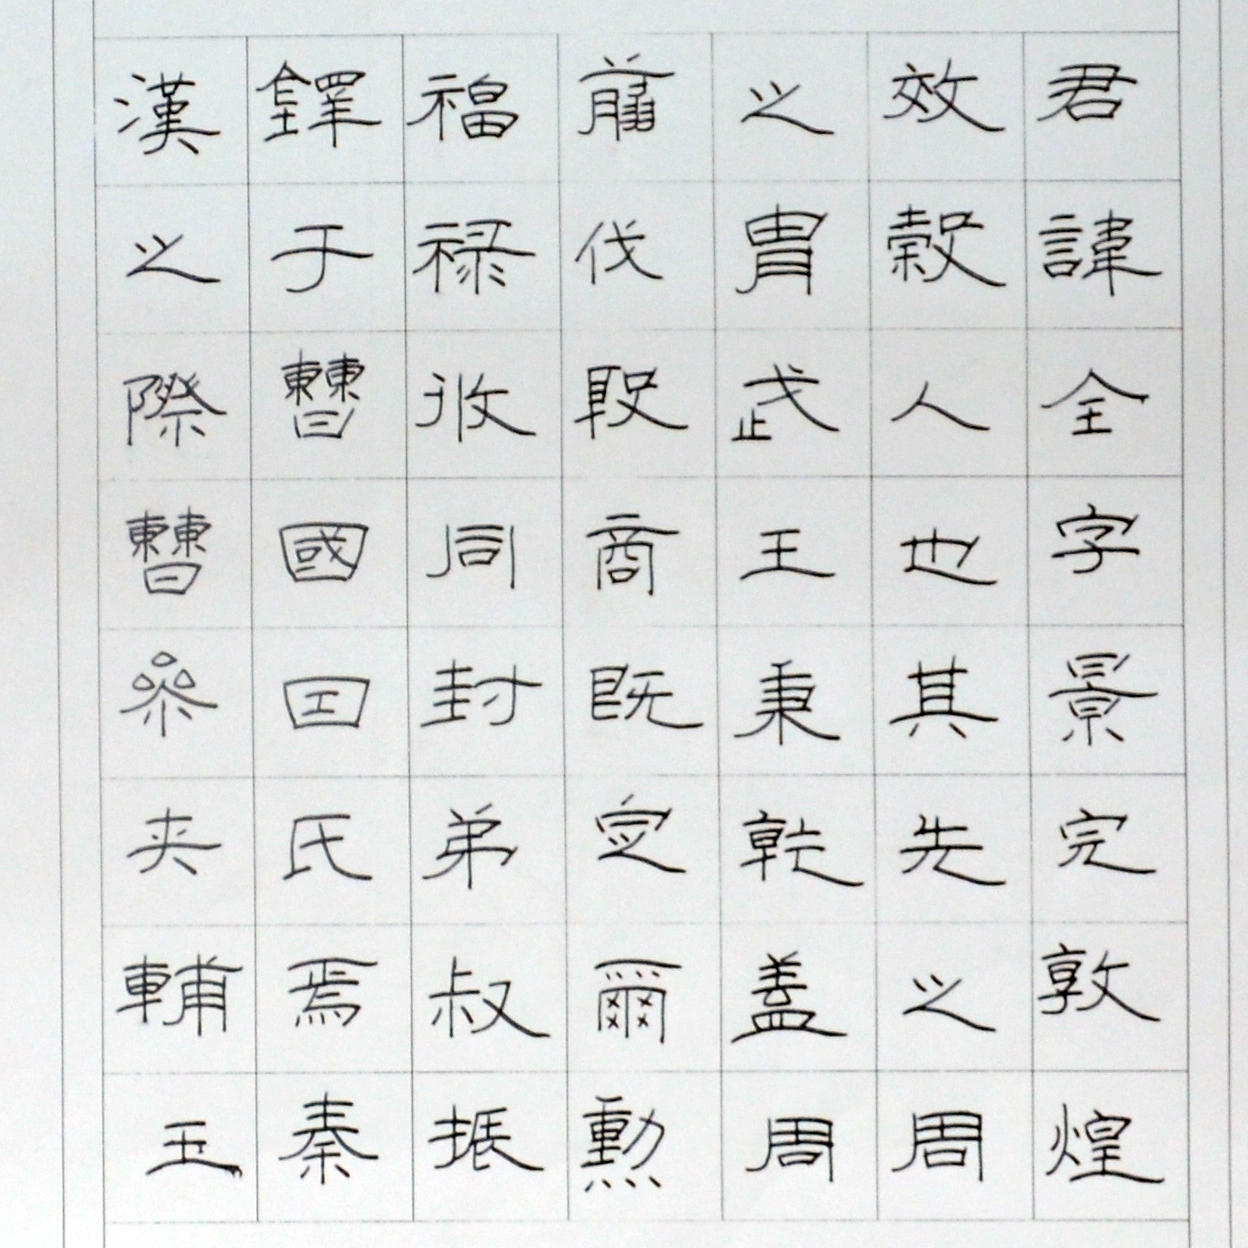 君諱全字景完敦煌
效穀人也其先之周
之胄武王秉乾盖周
翦伐殷商既定爾勳
福禄攸同封弟叔振
鐸于曹國因氏焉秦
漢之際曹參夾輔玉